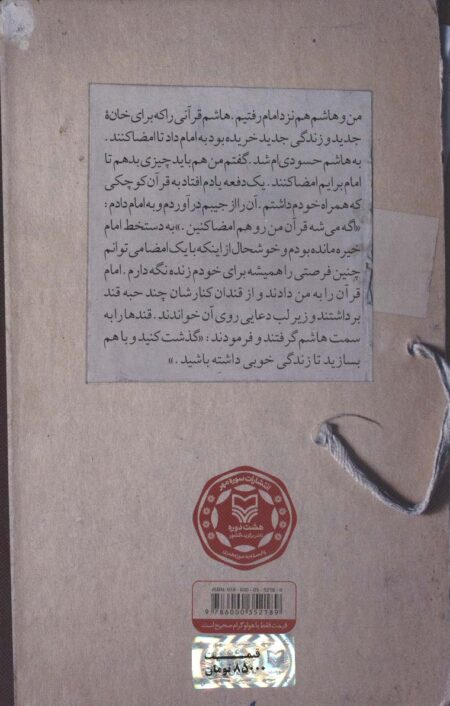 من و هاشم هم نزد امام رفتیم. هاشم قرآنی را که برای خانهٔ
جدید و زندگی جدید خریده بود به امام داد تا امضا کنند.
به هاشم حسودی‌ام شد. گفتم من هم باید چیزی بدهم تا
امام برایم امضا کنند. یک‌دفعه یادم افتاد به قرآن کوچکی
که همراه خودم داشتم. آن را از جیبم درآوردم و به امام دادم:
«اگه می‌شه قرآن من رو هم امضا کنین.» به دستخط امام
خیره مانده بودم و خوشحال از اینکه با یک امضا می‌توانم
چنین فرصتی را همیشه برای خودم زنده نگه دارم. امام
قرآن را به من دادند و از قندان کنارشان چند حبه قند
برداشتند و زیر لب دعایی روی آن خواندند. قندها را به
سمت هاشم گرفتند و فرمودند: «گذشت کنید و با هم
بسازید تا زندگی خوبی داشته باشید.»
انتشارات سوره مهر
هشت دوره
ناشر برگزیده کشور
9 786000 352189
قیمت فقط با هولوگرام صحیح است
قیمت
۸۵۰۰۰ تومان